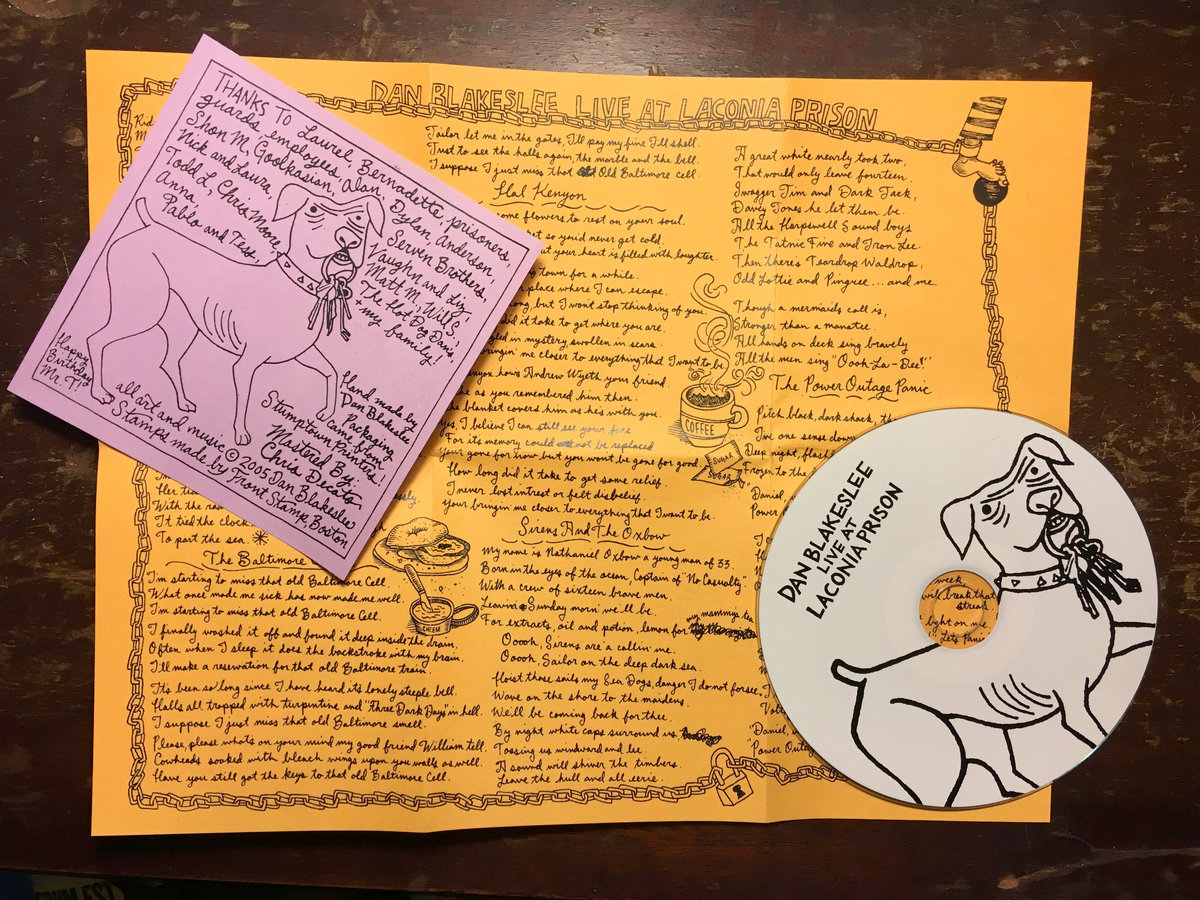 THANKS TO Laurel, Bernadette, prisoners,
guards, employees, Alan, Dylan, Anderson,
Shon M. Gookkasian, Servin Brothers,
Nick and Laura, Vaughn and Liz,
Todd L, Chris Moore, Matt M, Will S,
Anna, The Hot Dog Davis,
Pablo and Tess, + my family!
Happy
Birthday
Mr. T!
Hand made by
Dan Blakeslee
Packaging
came from
Stumptown Printers!
Mastered By:
Chris Decato
all art and music © 2005 Dan Blakeslee
Stamps made by Front Stamp, Boston
DAN BLAKESLEE LIVE AT LACONIA PRISON
Rid
M
Tailor let me in the gates, I'll pay my fine I'll shell.
Just to see the halls again, the marble and the bell.
I suppose I just miss that Old Baltimore cell.
Hal Kenyon
some flowers to rest on your soul.
et so you'd never get cold.
ut your heart is filled with laughter.
ng town for a while.
r place where I can escape.
ong, but I wont stop thinking of you.
did it take to get where you are.
gled in mystery, swollen in scars.
bringin' me closer to everything that I want to be.
enyon how's Andrew Wyeth your friend.
he as you remembered him then.
he blanket covers him as he's with you.
yes, I believe I can still see your face
For its memory could not be replaced
Your gone for now but you wont be gone for good.
How long did it take to get some relief.
I never lost intrest or felt disbelief.
Your bringin me closer to everything that I want to be.
Her tie
With the roa
It tied the clock
To part the sea.
The Baltimore
I'm starting to miss that old Baltimore Cell.
What once made me sick has now made me well.
I'm starting to miss that old Baltimore Cell.
I finally washed it off and found it deep inside the drain.
Often when I sleep it does the backstroke with my brain.
I'll make a reservation for that old Baltimore train.
Its been so long since I have heard its lonely steeple bell.
Halls all tropped with turpintine and "Three Dark Days" in hell.
I suppose I just miss that old Baltimore smell.
Please, please whats on your mind my good friend William tell.
Cowheads soaked with bleach wings upon you walls as well.
Have you still got the keys to that old Baltimore Cell.
CHEESE
COFFEE
SUGAR
SUGAR
Sirens And The Oxbow
My name is Nathaniel Oxbow a young man of 33.
Born in the eyes of the ocean, Captain of "No Casualty".
With a crew of sixteen brave men,
Leavin Sunday morn we'll be.
my mammy's tea
For extracts, oil and potion, lemon for
Ooooh, Sirens are a callin' me.
Ooooh, Sailor on the deep dark sea.
Hoist those sails my Sea Dogs, danger I do not forsee.
Wave on the shore to the maidens,
We'll be coming back for thee.
By night white caps surround us,
Tossing us windward and lee.
A sound will shiver the timbers.
Leave the hull and all eerie.
A great white nearly took two,
That would only leave fourteen.
Swagger Tim and Dark Jack,
Davey Jones he let them be.
All the Harpswell Sound boys
The Tatnic Five and Iron Lee.
Then there's Teardrop Waldrop,
Odd Lottie and Pingree... and me.
Though a mermaids call is,
Stronger than a manatee.
All hands on deck sing bravely
All the men sing "Oooh-La-Dee!"
The Power Outage Panic
Pitch black, dark shack, the
I've one sense down
Deep night, flash
Frozen to the
"Daniel,
Power
"Daniel, w
"Power Outag
DAN BLAKESLEE
LIVE AT
LACONIA PRISON
week
will break that
streak.
light on me.
Lets Panic